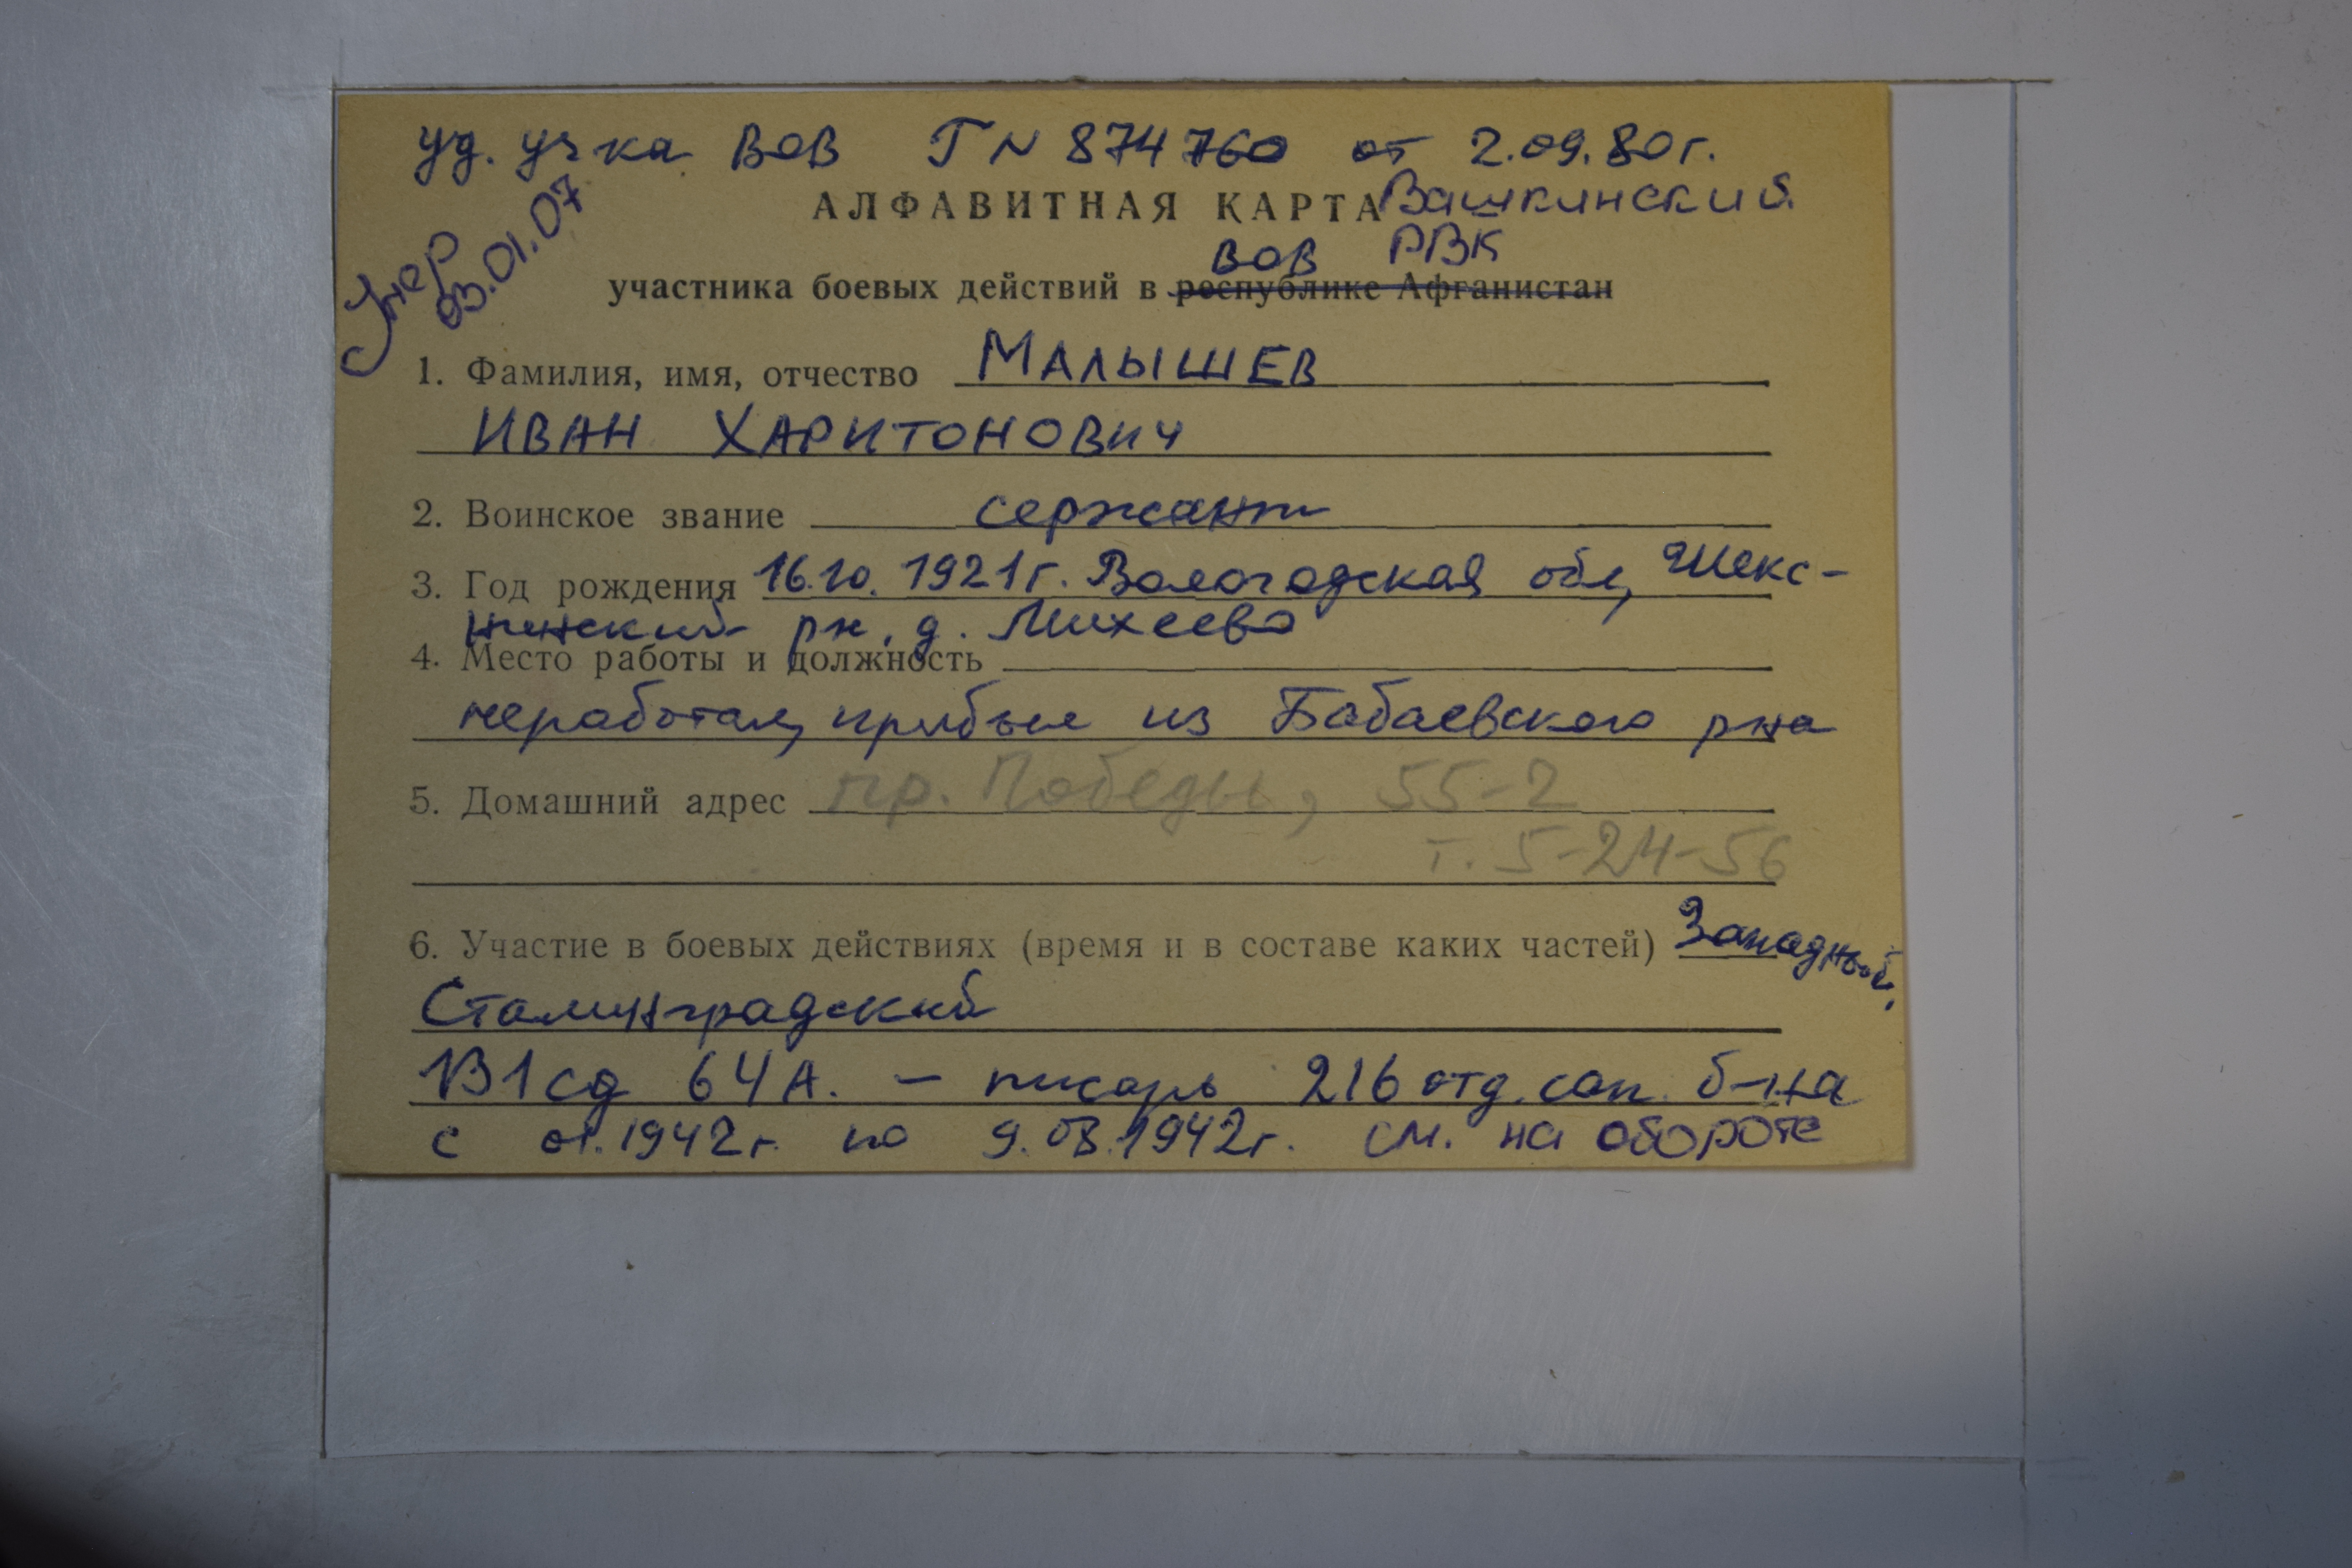 уд. уч-ка ВОВ Г N 874760 от 2.09.80г.
АЛФАВИТНАЯ КАРТА Вашкинский
РВК
Умер
03.01.07
ВОВ
участника боевых действий в республике Афганистан
1. Фамилия, имя, отчество МАЛЫШЕВ
ИВАН ХАРИТОНОВИЧ
2. Воинское звание сержант
3. Год рождения 16.10.1921г. Вологодская обл, Шекс-
нинский рн, д. Михеево
4. Место работы и должность
неработал, прибыл из Бабаевского рна
5. Домашний адрес пр. Победы, 55-2
т. 5-24-56
6. Участие в боевых действиях (время и в составе каких частей) Западный,
Сталинградский
131 сд 64А. - писарь 216 отд. сап. б-на
с 01.1942г. по 9.08.1942г. см. на обороте